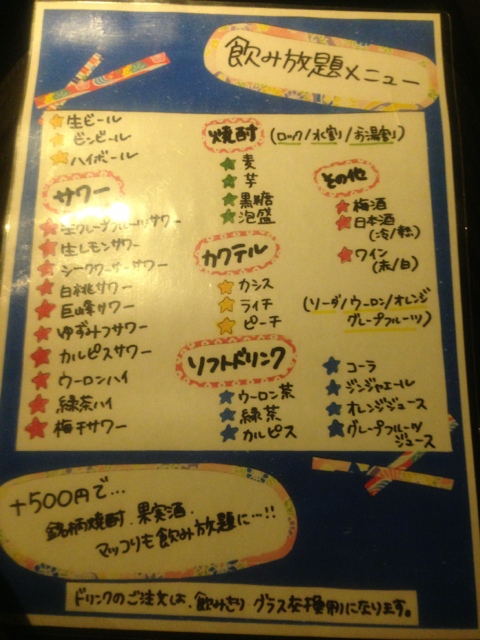 飲み放題メニュー
生ビール
ビンビール
ハイボール
サワー
生グレープフルーツサワー
生レモンサワー
シークワーサーサワー
白桃サワー
巨峰サワー
ゆずみつサワー
カルピスサワー
ウーロンハイ
緑茶ハイ
梅干サワー
焼酎 (ロック/水割り/お湯割り)
麦
芋
黒糖
泡盛
カクテル
カシス
ライチ
ピーチ
(ソーダ/ウーロン/オレンジ
グレープフルーツ)
その他
梅酒
日本酒
(冷/熱)
ワイン
(赤/白)
ソフトドリンク
ウーロン茶
緑茶
カルピス
コーラ
ジンジャエール
オレンジジュース
グレープフルーツ
ジュース
+500円で…
銘柄焼酎.果実酒.
マッコリも飲み放題に…!!
ドリンクのご注文は、飲みきり グラス交換制になります。